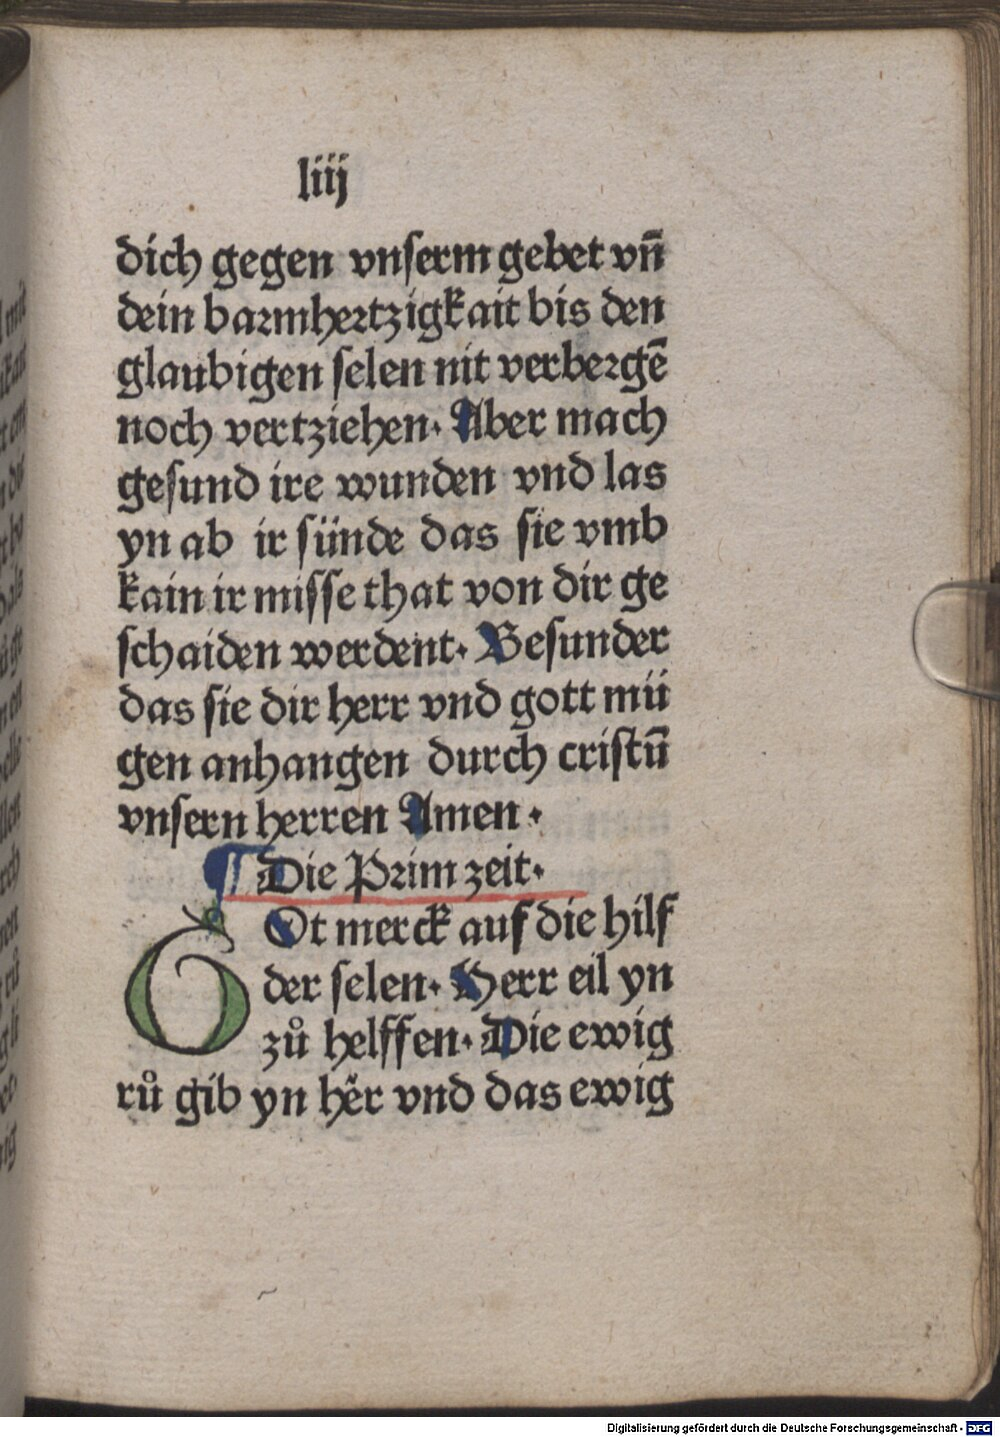 liij
dich gegen vnserm gebet vn̄
dein barmhertzigkait bis den
glaubigen selen nit verbergē
noch vertziehen. Aber mach
gesund ire wunden vnd las
yn ab ir sünde das sie vmb
kain ir missethat von dir ge
schaiden werdent. Besunder
das sie dir herr vnd gott mü
gen anhangen durch cristū
vnsern herren Amen.
¶ Die Prim zeit.
GOt merck auf die hilf
der selen. Herr eil yn
zů helffen. Die ewig
rů gib yn hēr vnd das ewig
Digitalisierung gefördert durch die Deutsche Forschungsgemeinschaft - DFG